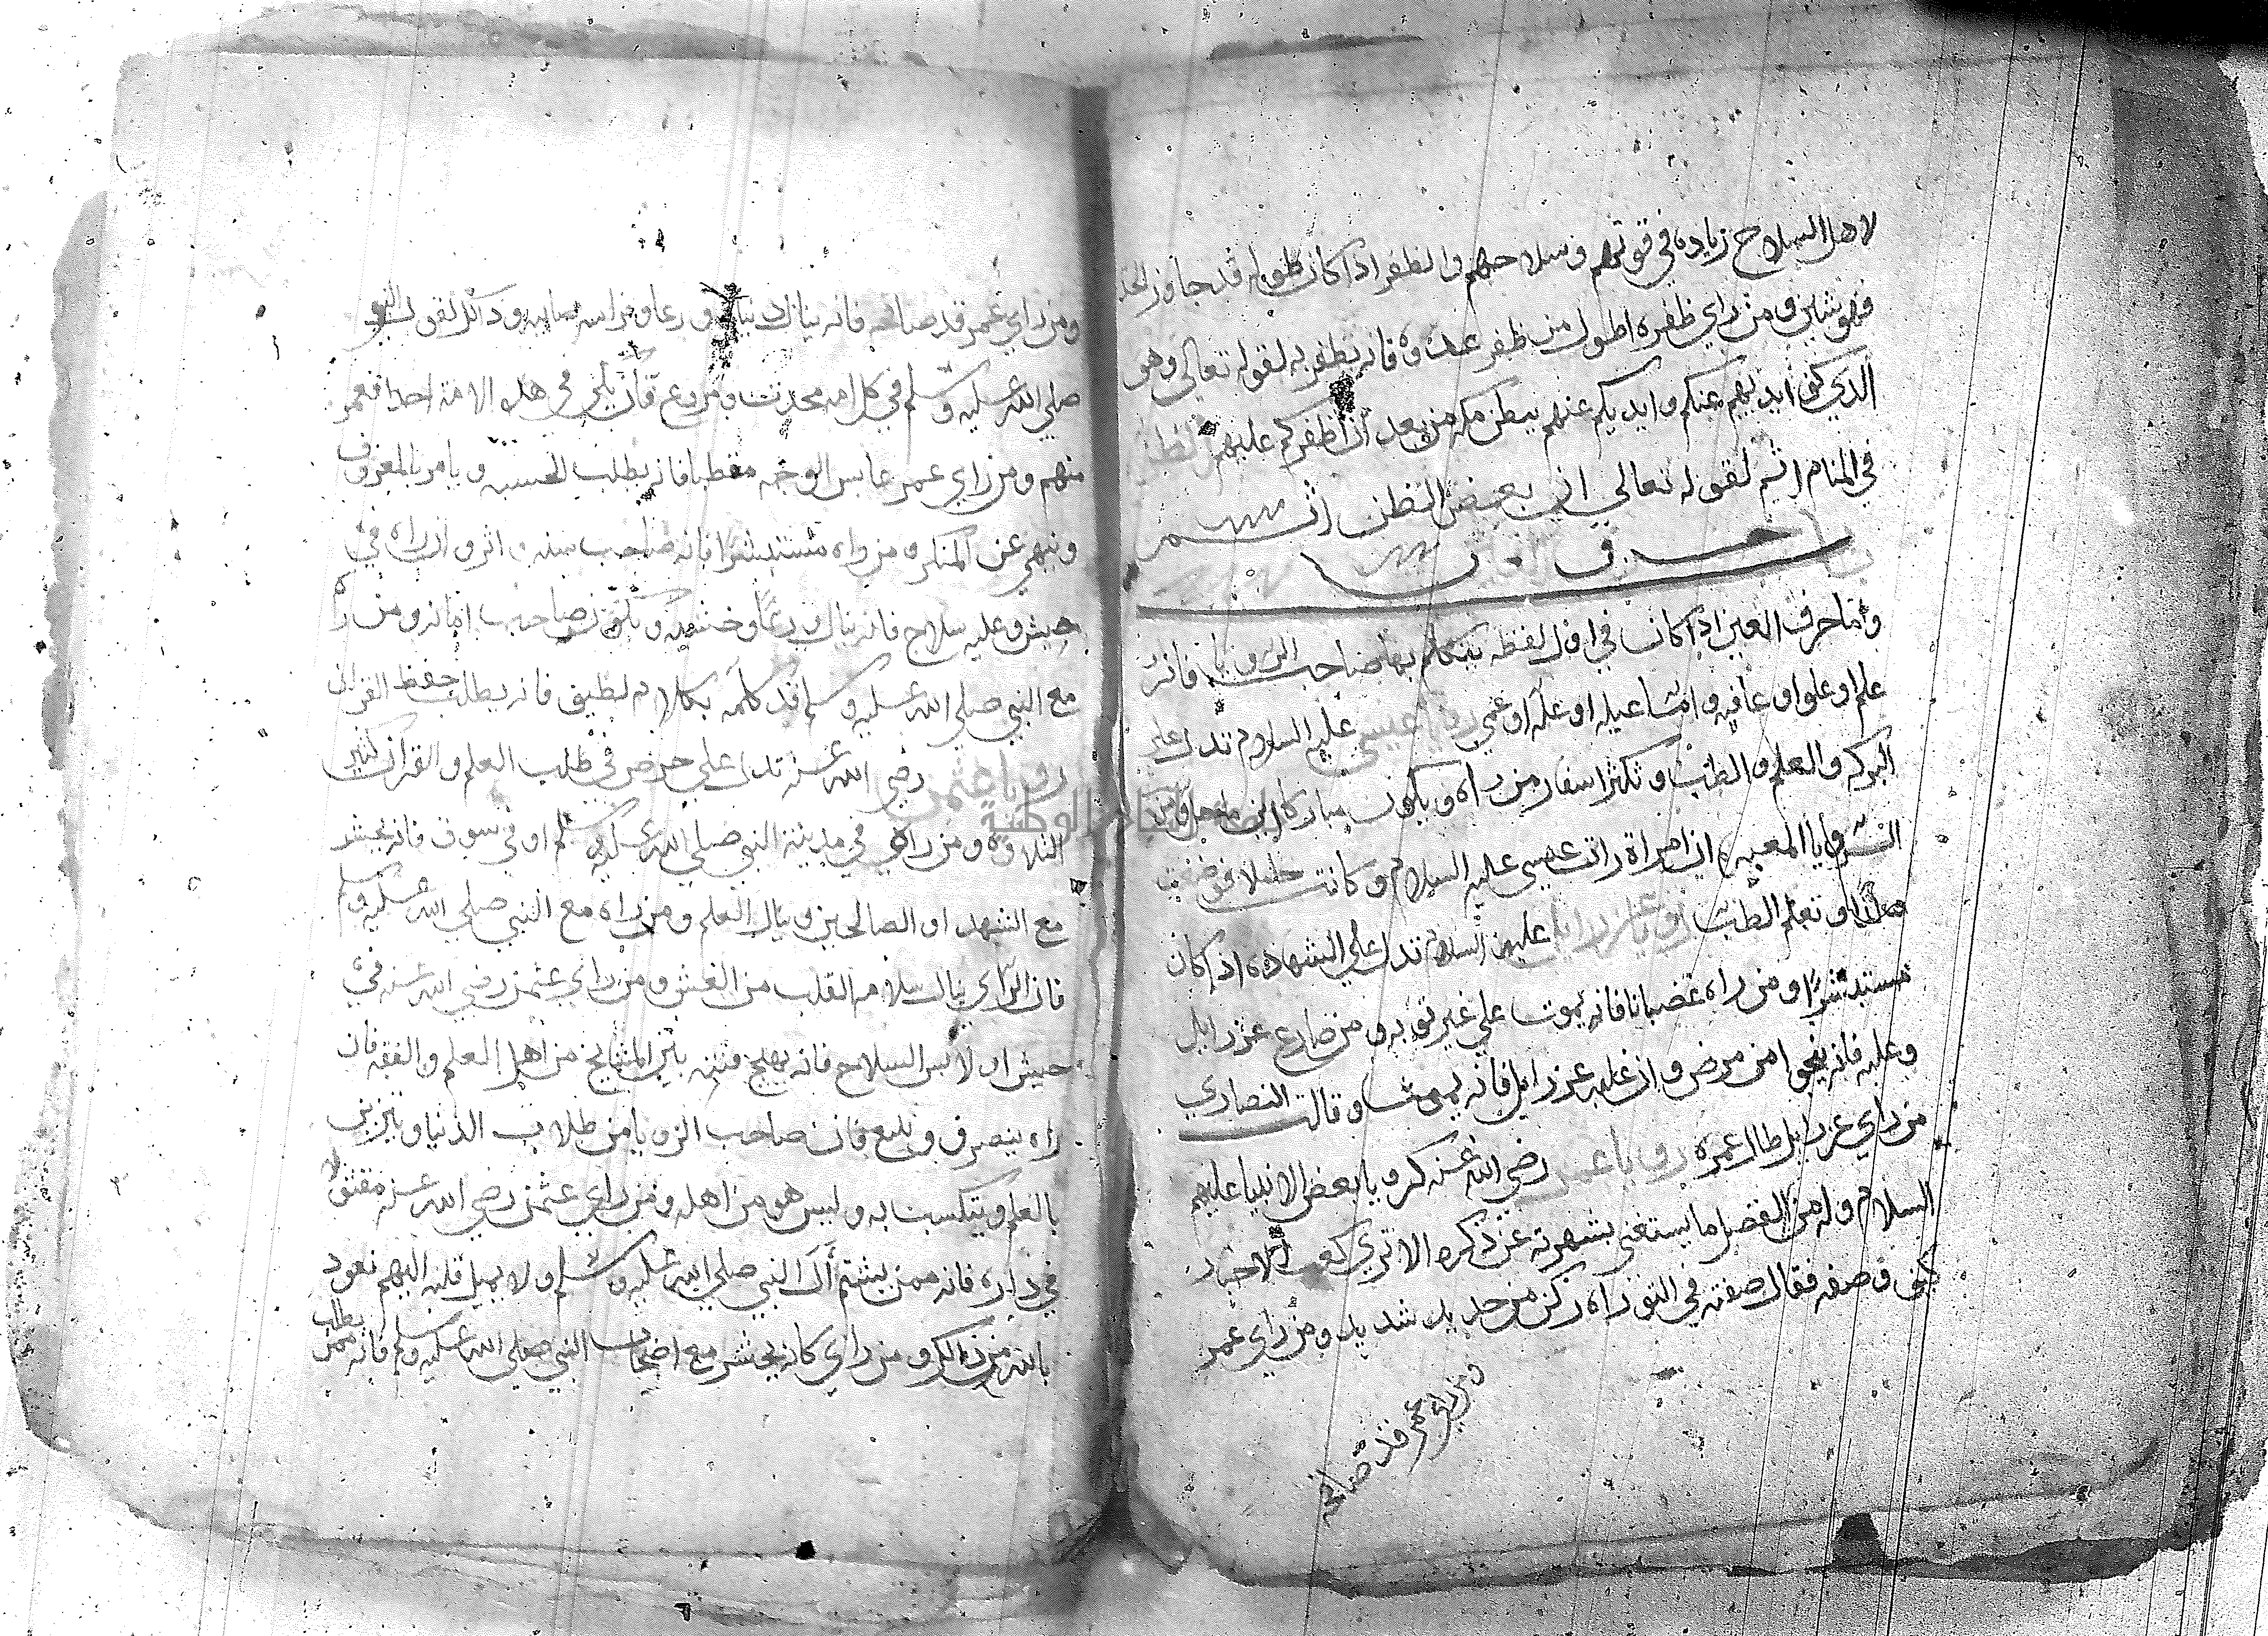 لاهل السلاح زياده في قوتهم وسلاحهم والظفر اذا كان طوله قد جاوز الحد
فهو شين ومن راي ظفره اطول من ظفر عدوه فانه يظفر به لقوله تعالي وهو
الذي كف ايديهم عنكم وايديكم عنهم ببطن مكه من بعد ان اظفركم عليهم الظن
في المنام اثم لقوله تعالي ان بعض الظن اثم
حرف العين
واما حرف العين اذا كانت في اول لفظه يتكلم بها صاحب الرويا فانه
علم او علو او عافيه وامشاعيله او عله او عمي رويا عيسي عليه السلام تدل علي
البركه والعلم والطب وتكثر اسفار من راه ويكون مباركا اين ما حل ومن
الرويا المعبره ان امراة رات عيسي عليه السلام وكانت حاملا فوضعت
ولدا وتعلم الطب رويا عزرايل عليه السلام تدل علي الشهاده اذ كان
مستبشرا ومن راه غضبانا فانه يموت علي غير توبه ومن صارع عزرايل
وغلبه فانه ينجوا من مرض وان غلبه عزرايل فانه يموت وقالت النصاري
من راي عزرايل طال عمره رويا عمر رضي الله عنه كرويا بعض الانبيا عليهم
السلام وله من الفضل ما يستغني بشهرته عن ذكره الا تري كعب الاحبار
كيف وصفه فقال صفته في التوراه ركن من حديد شديد ومن راي عمر
ومن راي عمر قد صافحه
ومن راي عمر قد صافحه فانه ينال دنيا وورعا وفراسه صايبه وذلك لقول النبي
صلي الله عليه وسلم في كل امه محدث ومروع فان يكن في هذه الامة احدا فعمر
منهم ومن راي عمر عابس الوجه مقطبا فانه يطلب الحسبه ويامر بالمعروف
وينهي عن المنكر ومن راه مستبشرا فانه صاحب سنه واثر وان راه في
جيش وعليه سلاح فانه ينال ورعا وخشيه ويكون صاحب امانه ومن راه
مع النبي صلي الله عليه وسلم قد كلمه بكلام لطيف فانه يطلب حفظ القران
رويا عثمن رضي الله عنه تدل علي حرص في طلب العلم والقران كثير
التلاوه ومن راه في مدينة النبي صلي الله عليه وسلم او في سوق فانه يحشر
مع الشهدا والصالحين وينال العلم ومن راه مع النبي صلي الله عليه وسلم
فان الراي ينال سلامه القلب من الغش ومن راي عثمن رضي الله عنه في
جيش او لابس السلاح فانه يهيج فتنه بين المشايخ من اهل العلم والفقه فان
راه يتصرف ويبيع فان صاحب الرويا من طلاب الدنيا ويتزين
بالعلم ويتكسب به وليس هو من اهله ومن راي عثمن رضي الله عنه مقتولا
في داره فانه ممن يشتم آل النبي صلي الله عليه وسلم ولا يميل قلبه اليهم نعوذ
بالله من ذلك ومن راي كانه يحشر مع اصحاب النبي صلي الله عليه وسلم فانه ممن يطلب